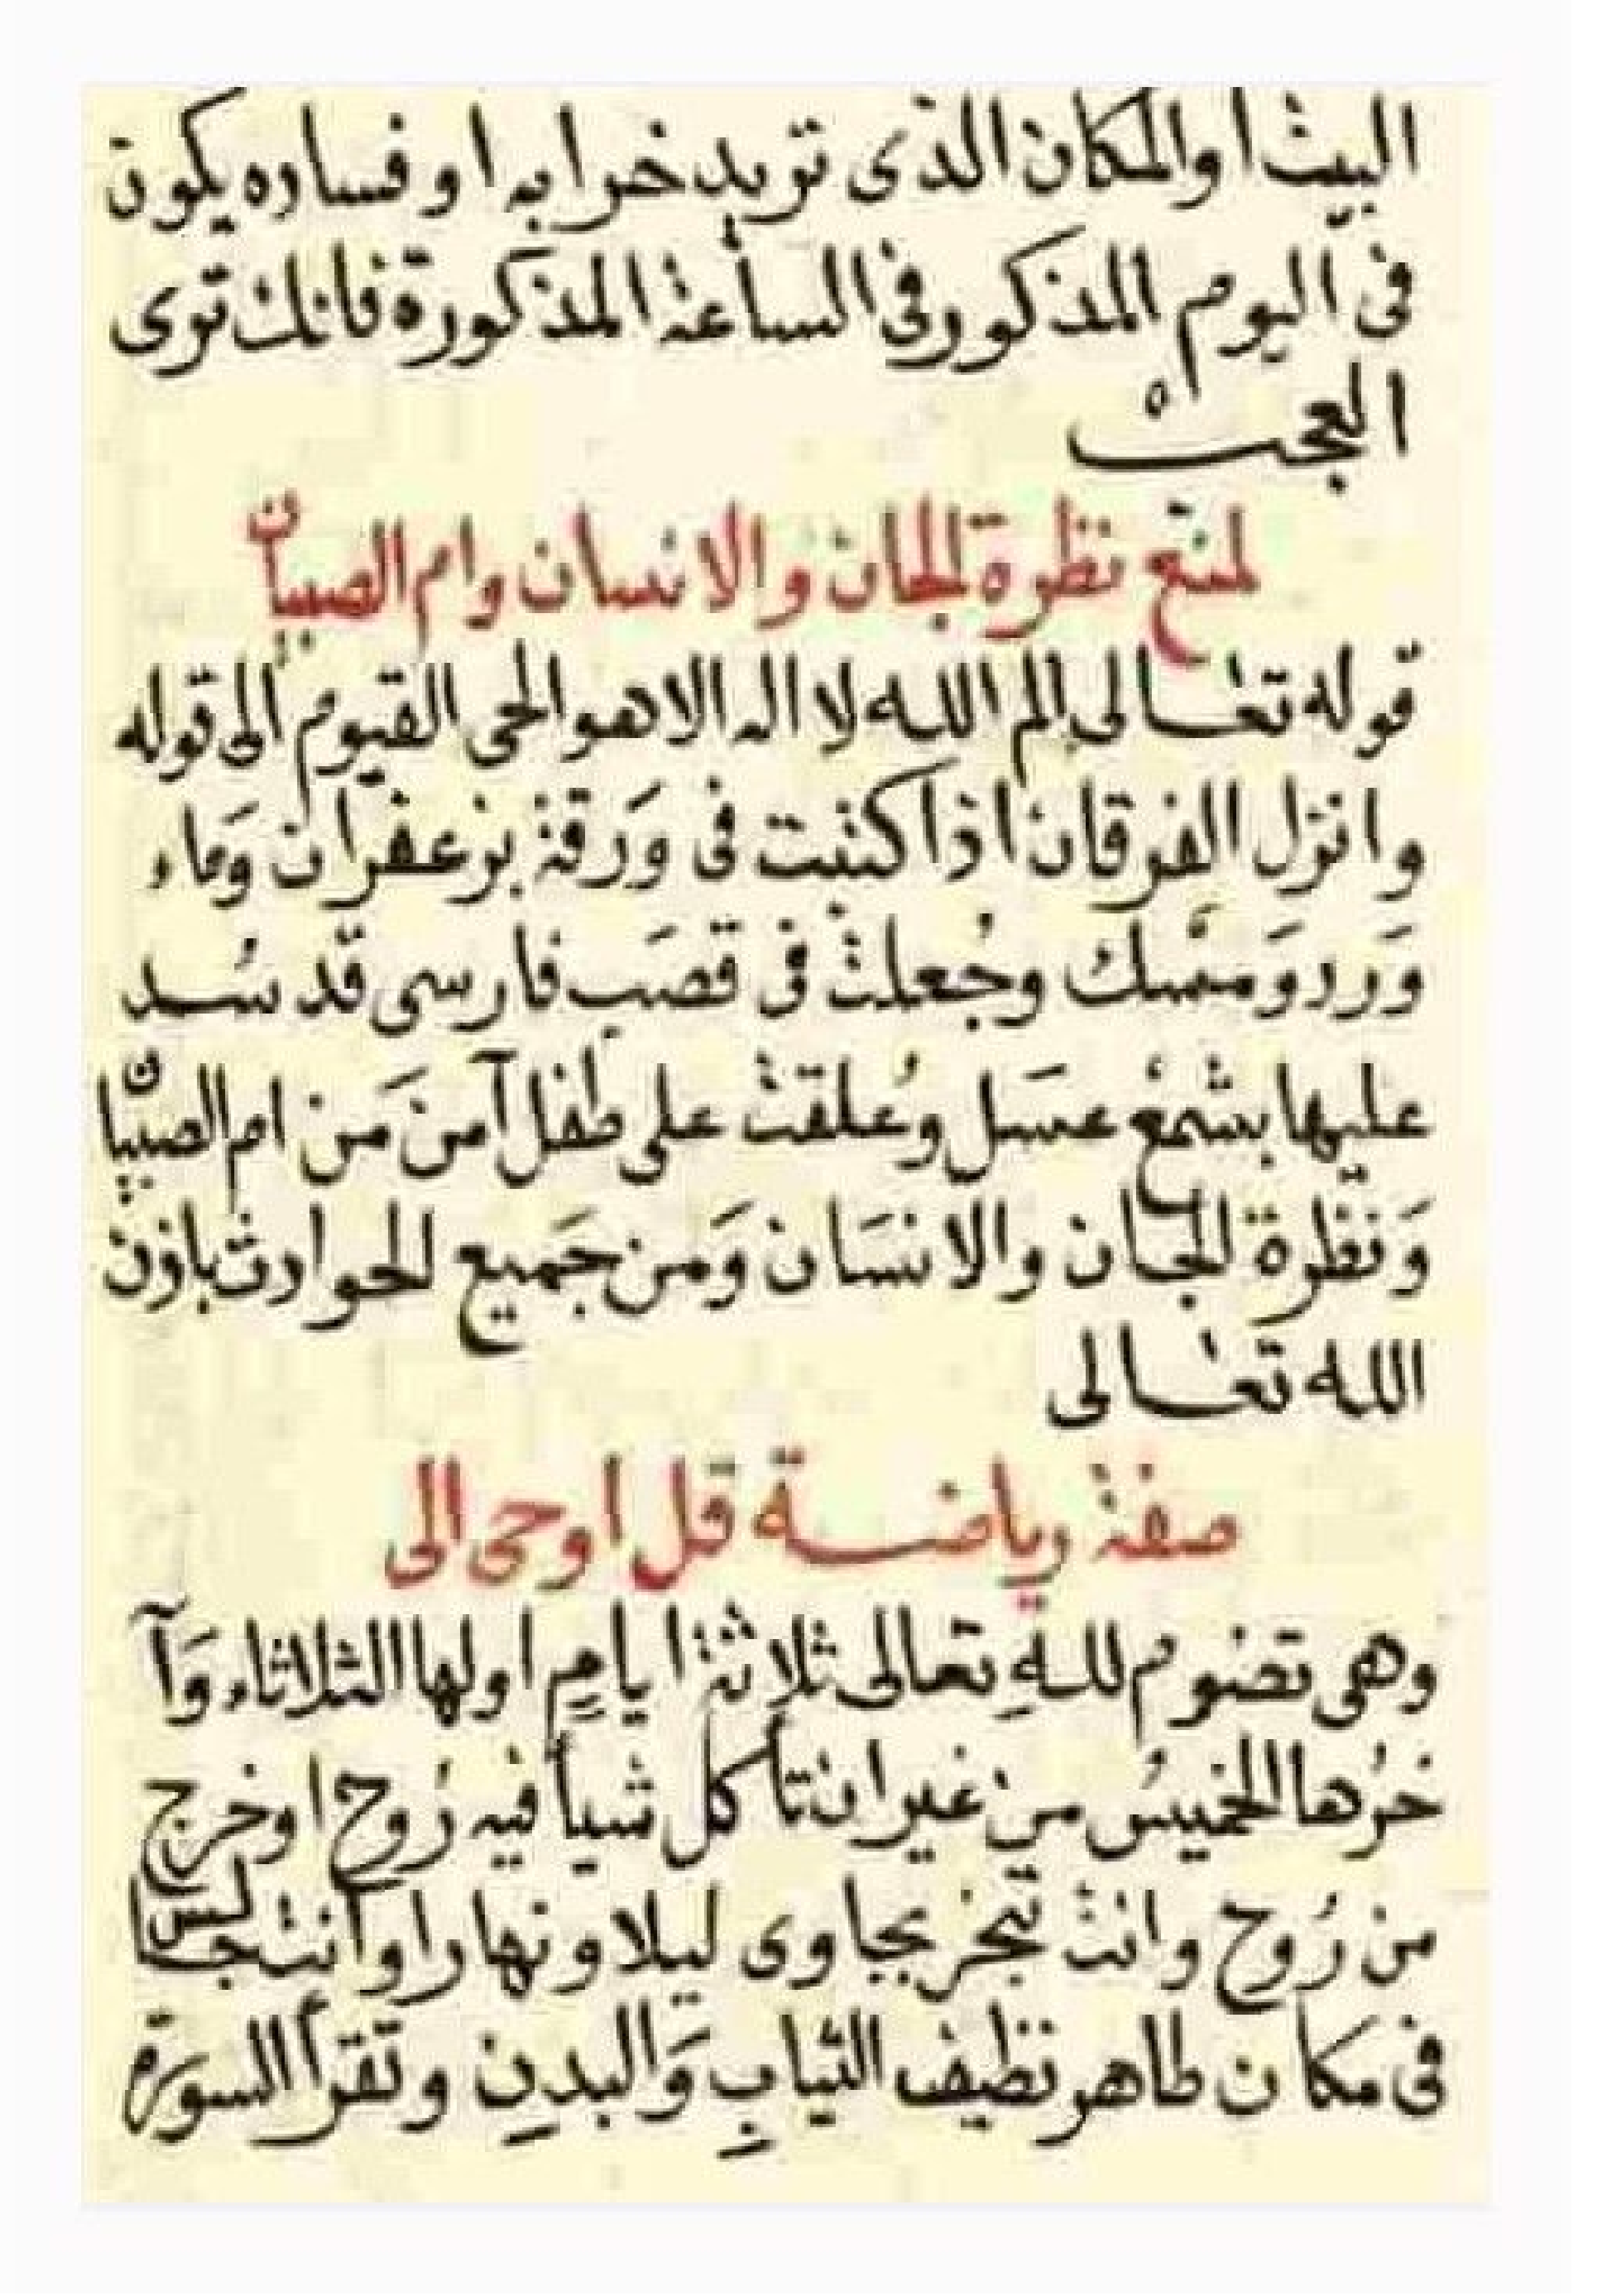 البيت او المكان الذى تريد خرابه او فساده يكون
فى اليوم المذكور فى الساعة المذكورة فانك ترى
العجب
لمنع نظرة الجان والانسان وام الصبيان
قوله تعالى الم الله لا اله الا هو الحى القيوم الى قوله
وانزل الفرقان اذا كتبت فى وَرقة بزعفران وَماء
وَرد وَمسك وجُعلت فى قصَب فارسى قد سُد
عليها بشمع عسَل وعُلقت على طفل آمنَ مَن ام الصبيان
وَنظرة للجان والانسَان وَمن جَميع للحوادث باذن
الله تعالى
صفة رياضة قل اوحى الى
وهى تصوم للهِ تعالى ثلاثة ايامٍ اولها الثلاثاء وَآ
خرُها الخميسُ من غير ان تأكل شيأ فيه رُوح او خرج
من رُوح وانت تبخر بجاوى ليلا ونهارا وانت جالس
فى مَكان طاهر نظيف الثيابِ وَالبدنِ وتقرأ السورة